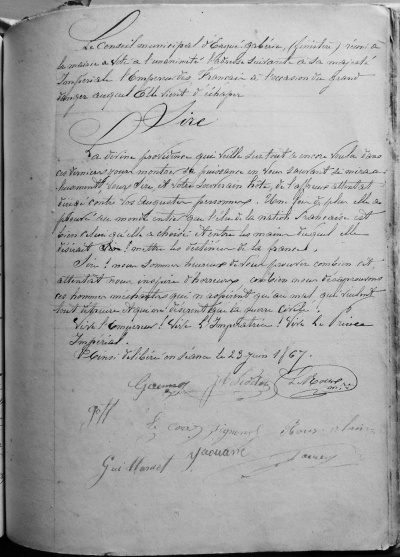 Le Conseil municipal d'Ergué gabéric, (finistère) réuni à
la mairie a voté à l'unanimité l'adresse suivante à sa majesté
Impériale l'Empereur des Français à l'occasion du grand
danger auquel Elle vient d'échaper
Sire
La divine providence qui veille sur tout a encore voulu dans
ces derniers jours montrer sa puissance en vous sauvant si mira-
culeusement, vous Sire et votre souverain hôte, de l'affreux attentat
dirigé contre vos augustes personnes. Une fois de plus elle a
prouvé au monde entier que l'élu de la nation française est
bien celui qu'elle a choisi et entre les mains duquel elle
désirait mettre les destinées de la france.
Sire! nous sommes heureux de vous prouver combien cet
attentat nous inspire d'horreur combien nous désaprouvons
ces hommes méchants qui n'aspirent qu'au mal qui veulent
tout détruire et qui ne désirent que la guerre civile.
Vive l'Empereur! Vive l'Impératrice! Vive Le Prince
Impérial.
Ainsi délibéré en séance le 23 Juin 1867.
Le Roux